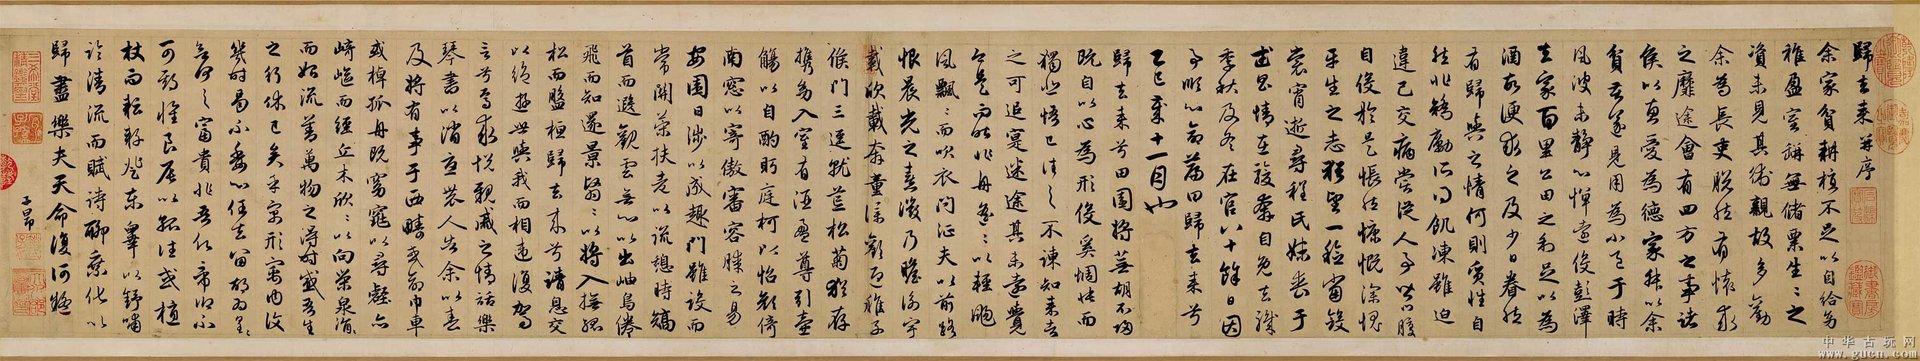 歸去來并序
余家貧耕植不足以自給幼
稚盈室缾無儲粟生々之
資未見其術親故多勸
余為長吏脫然有懷求
之靡途會有四方之事諸
侯以惠愛為德家叔以余
貧苦遂見用為小邑于時
風波未靜心憚遠役彭澤
去家百里公田之利足以為
酒故便求之及少日眷然
有歸與之情何則質性自
然非矯勵所得飢凍雖迫
違己交病嘗從人事皆口腹
自役於是悵然慷慨深愧
平生之志猶望一稔當斂
裳宵逝尋程氏妹喪于
武昌情在駿奔自免去職
季秋及冬在官八十餘日因
事順心命篇曰歸去來兮
乙巳歲十一月也
歸去來兮田園將蕪胡不歸
既自以心為形役奚惆悵而
獨悲悟已往之不諫知來者
之可追寔迷途其未遠覺
今是而昨非舟遙々以輕颺
風飄々而吹衣問征夫以前路
恨晨光之熹微乃瞻衡宇
載欣載奔童僕歡迎稚子
候門三逕就荒松菊猶存
攜幼入室有酒盈尊引壺
觴以自酌眄庭柯以怡顏倚
南窗以寄傲審容膝之易
安園日涉以成趣門雖設而
常關策扶老以流憩時矯
首而遐觀雲無心以出岫鳥倦
飛而知還景翳々以將入撫孤
松而盤桓歸去來兮請息交
以絕游世與我而相違復駕
言兮焉求悅親戚之情話樂
琴書以消憂農人告余以春
及將有事于西疇或命巾車
或棹孤舟既窈窕以尋壑亦
崎嶇而經丘木欣々以向榮泉涓々
而始流善萬物之得時感吾生
之行休已矣乎寓形宇內復
幾時曷不委心任去留胡為遑々
兮何之富貴非吾願帝鄉不
可期懷良辰以孤往或植
杖而耘耔登東皋以舒嘯
臨清流而賦詩聊乘化以
歸盡樂夫天命復何疑
子昂
中华古玩网
www.gucn.com